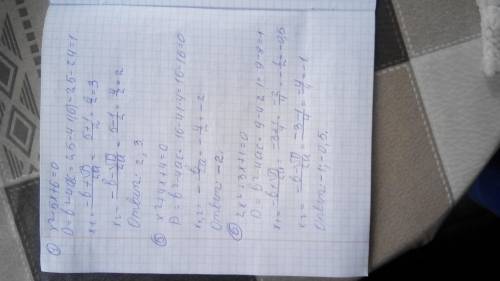 а) x²-5x+6=0
D=b²-4ac=25-4·1·6=25-24=1
x₁=(-b+√D)/2a=(5+1)/2=6/2=3
x₂=(-b-√D)/2a=(5-1)/2=4/2=2
Ответ: 2, 3
б) x²+4x+4=0
D=b²-4ac=16-4·1·4=16-16=0
x₁,₂=-b/2a=-4/2=-2
Ответ: -2.
в) 2x²+3x+1=0
D=b²-4ac=9-4·2·1=9-8=1
x₁=(-b+√D)/2a=(-3+1)/4=-2/4=-1/2=-0,5
x₂=(-b-√D)/2a=(-3-1)/4=-4/4=-1
Ответ: -1; -0,5.